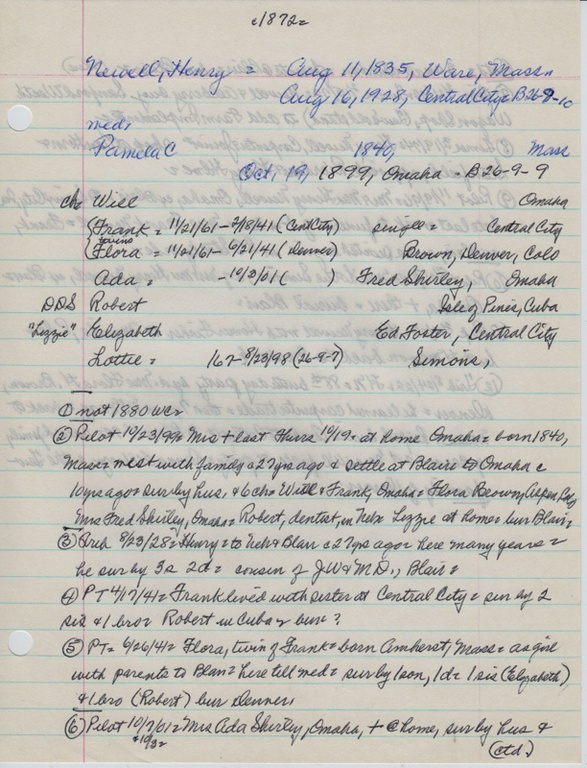 c1872=
Newell, Henry = Aug 11, 1835, Ware, Mass=
Aug 16, 1928, Central City = B26-9-10
med:
Pamela C 1840, Mass
Oct, 19, 1899, Omaha - B26-9-9
ch: Will Omaha
(Frank = 11/21/61 - 2/18/41 (CentCity) single = Central City
twins
(Flora = 11/21/61 - 6/21/41 (Denver) Brown, Denver, Colo
Ada = - 10/3/01 ( ) Fred Shirley, Omaha
DDS Robert Isle of Pines, Cuba
"Lizzie" Elizabeth Ed Foster, Central City
Lottie = 162 - 8/23/98 (26-9-7) Simons,
① not 1880 WC=
② Pilot 10/23/99 = Mrs + last Thurs 10/19 = at home Omaha = born 1840,
Mass = west with family c27 yrs ago & settle at Blair to Omaha c
10 yrs ago = sur by hus, & 6 ch = Will & Frank, Omaha = Flora Brown, Aspen, Colo,
Mrs Fred Shirley, Omaha = Robert, dentist, in Neb= Lizzie at home = bur Blair=
③ 8/23/28 = Henry = to Neb & Blair c27 yrs ago = here many years =
he sur by 3s 2d = cousin of JW & M.D., Blair=
④ PT 4/17/41 = Frank lived with sister at Central City = sur by 2
sis & 1 bro = Robert in Cuba = bur?
⑤ PT = 6/26/41 = Flora, twin of Frank = born Amherst, Mass = as girl
with parents to Blair = here till med = sur by 1 son, 1d = 1 sis (Elizabeth)
& 1 bro (Robert) bur Denver,
⑥ Pilot 10/7/01 = Mrs Ada Shirley, Omaha, + @ home, sur by hus &
(ctd.)